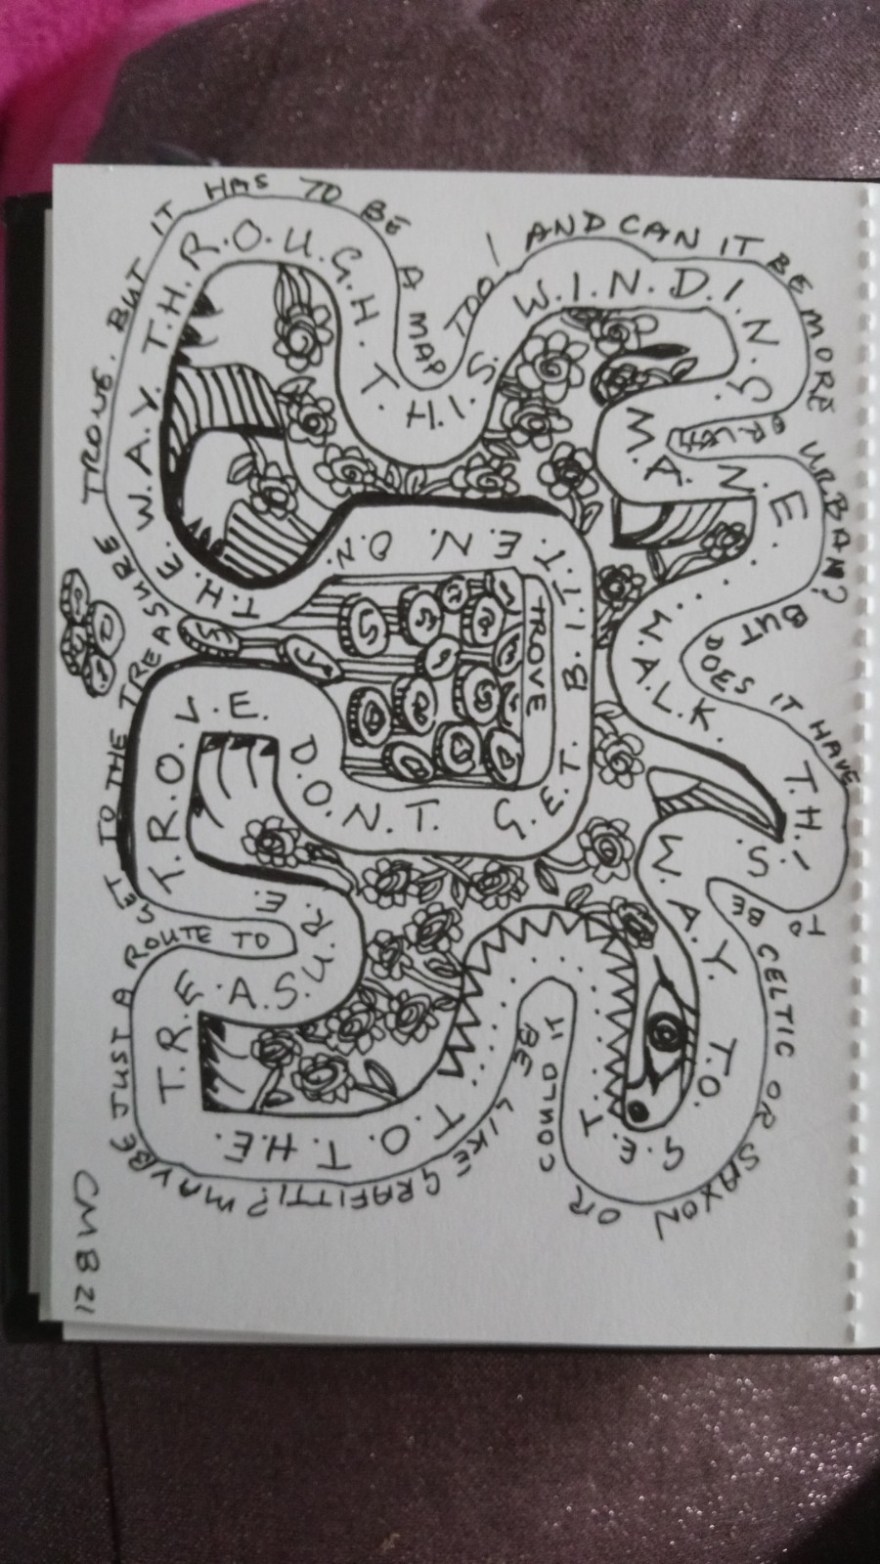 D.O.N.T. G.E.T. B.I.T.T.E.N. O.N. T.H.E. W.A.Y. T.H.R.O.U.G.H. T.H.I.S. W.I.N.D.I.N.G. M.A.Z.E. . . . . W.A.L.K. T.H.I.S. W.A.Y. T.O. G.E.T. . . . . T.O. T.H.E. T.R.E.A.S.U.R.E. T.R.O.V.E.
TROVE
MAYBE JUST A ROUTE TO GET TO THE TREASURE TROVE. BUT IT HAS TO BE A MAP TOO! AND CAN IT BE MORE URBAN? BUT DOES IT HAVE TO BE CELTIC OR SAXON OR COULD IT BE LIKE GRAFITTI?
CMB 21